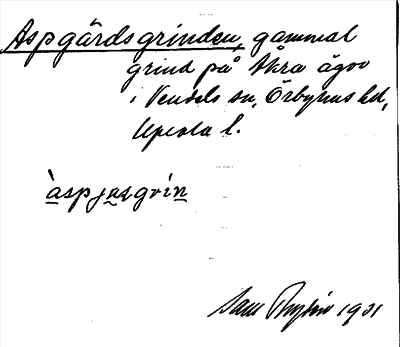 Aspgärdsgrinden, gammal
grind på Åkra ägor
i Vendels sn, Örbyhus hd,
Upsala l.
àspjysgrín
Sam 1931